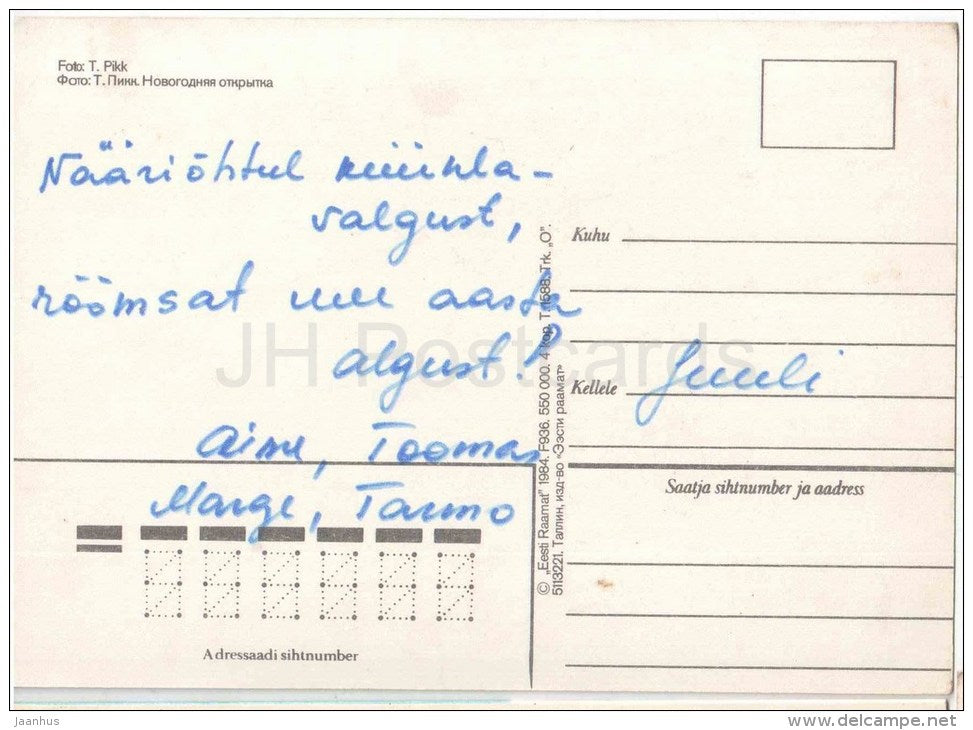 Foto: T. Pikk
Фото: Т. Пикк. Новогодняя открытка
Nääriõhtul küünla-
valgust,
rõõmsat uue aasta
algust!
Aime, Toomas
Marge, Tarmo
Adressaadi sihtnumber
© „Eesti Raamat” 1984. F936. 550 000. 4 kop. T. 1588. Trk. „O”.
5113221. Таллин, изд-во «Ээсти раамат»
Kuhu
Kellele Juuli
Saatja sihtnumber ja aadress
JH Postcards
Jaanhus
www.delcampe.net